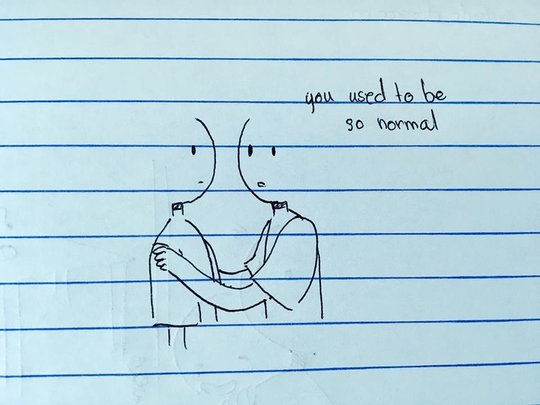 you used to be
so normal